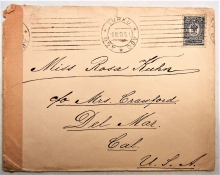 Miss Rosa Kuhn
c/o Mrs. Crawford
Del Mar.
Cal.
U.S.A